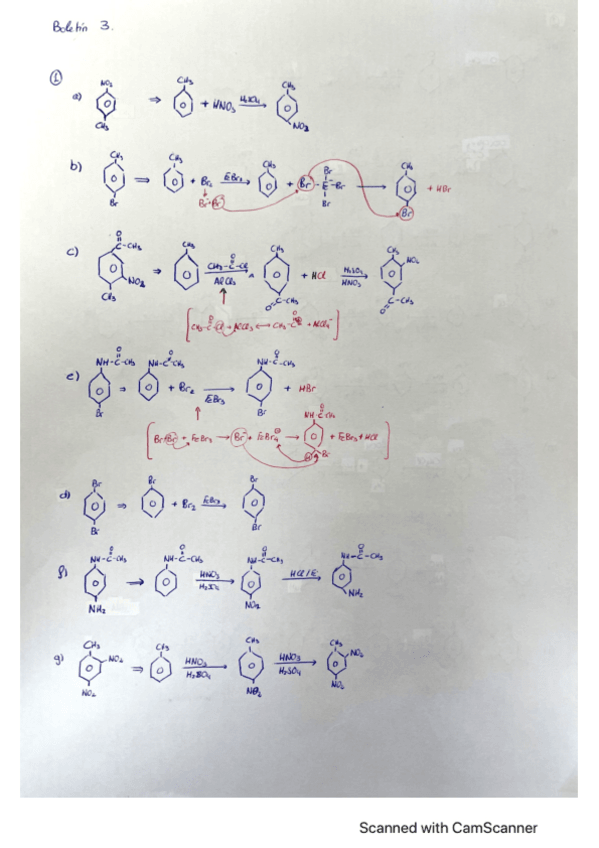 Boletín 3.
①
a) NO2 CH3 ⇒ CH3 + HNO3 H2SO4 → CH3 NO2
b) CH3 Br ⇒ CH3 + Br2 FeBr3 → CH3 + Br - Fe - Br Br Br → CH3 Br + HBr
Br-Br
c) O C-CH3 NO2 CH3 ⇒ CH3 CH3-C-Cl O AlCl3 → CH3 O=C-CH3 + HCl H2SO4 HNO3 → CH3 NO2 O=C-CH3
[CH3-C-Cl O + AlCl3 ⟷ CH3-C O ⊕ + AlCl4⁻]
e) NH-C-CH3 O Br ⇒ NH-C-CH3 O + Br2 FeBr3 → NH-C-CH3 O Br + HBr
[Br-Br + FeBr3 → Br + FeBr4 ⊖ → NH-C-CH3 O Br + FeBr3 + HCl]
d) Br Br ⇒ Br + Br2 FeBr3 → Br Br
f) NH-C-CH3 O NH2 ⇒ NH-C-CH3 O HNO3 H2SO4 → NH-C-CH3 O NO2 HCl/Fe → NH-C-CH3 O NH2
g) CH3 NO2 NO2 ⇒ CH3 HNO3 H2SO4 → CH3 NO2 HNO3 H2SO4 → CH3 NO2 NO2
Scanned with CamScanner